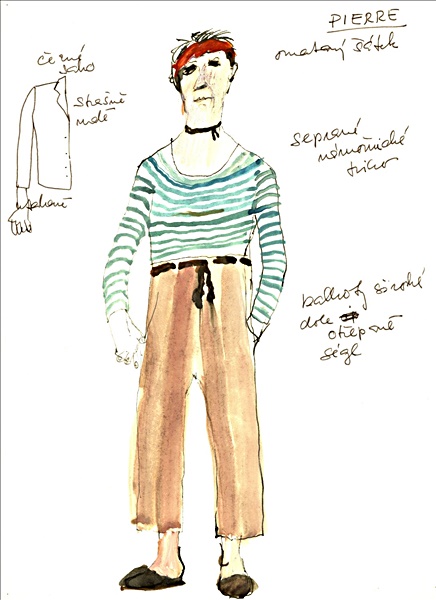 PIERRE
omataný šátek
černé
sako
strašně
malé
seprané
námořnické
triko
kalhoty široké
dole
otřepané